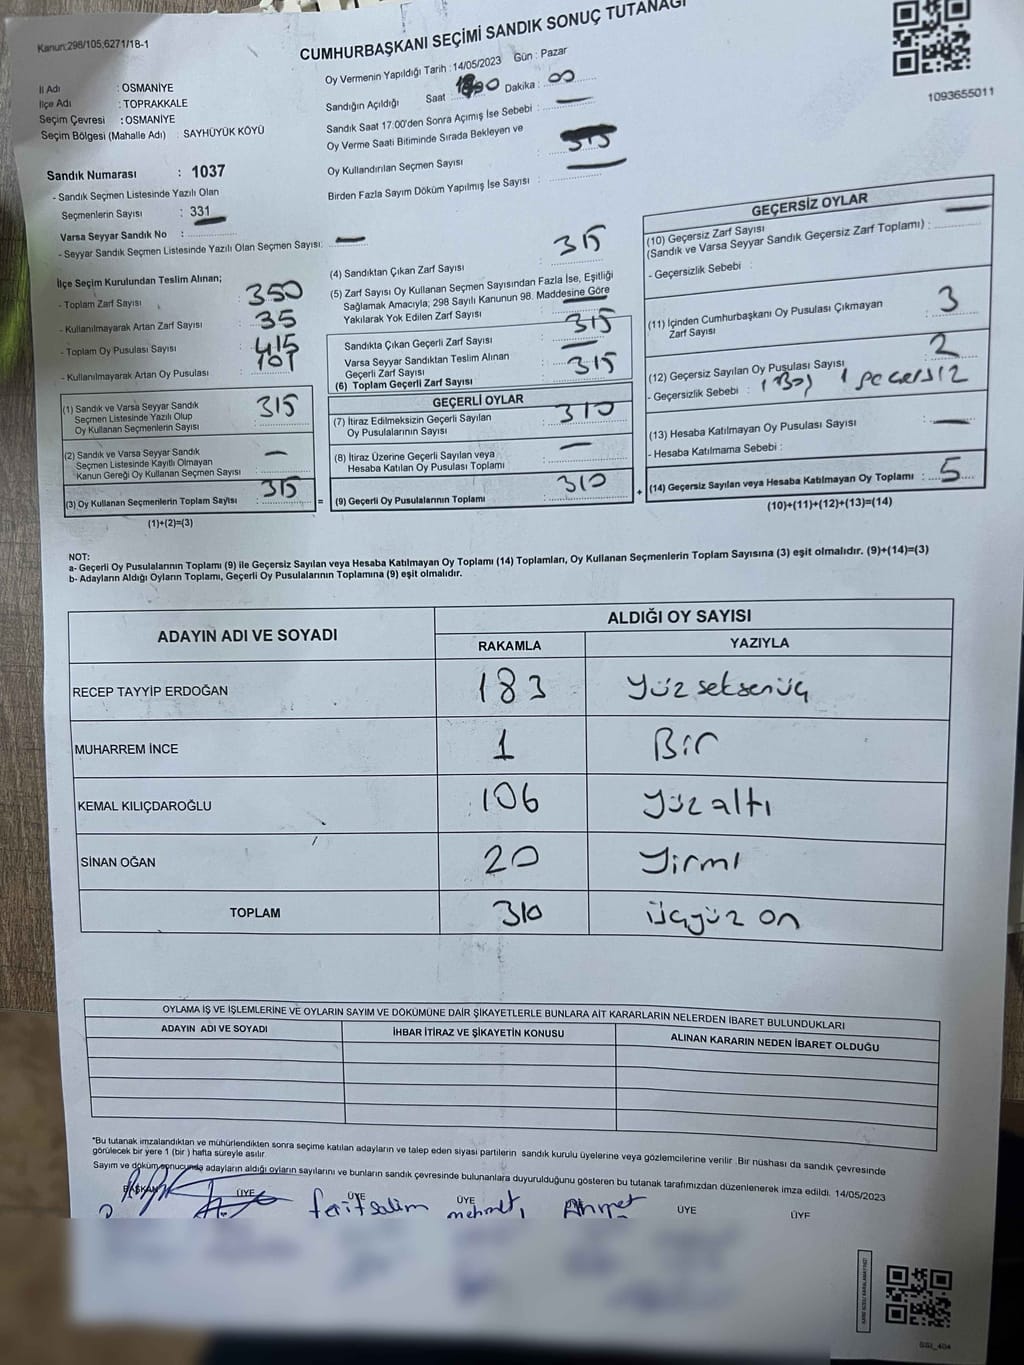 Kanun;298/105;6271/18-1
CUMHURBAŞKANI SEÇİMİ SANDIK SONUÇ TUTANAĞI
1093655011
İl Adı : OSMANİYE
İlçe Adı : TOPRAKKALE
Seçim Çevresi : OSMANİYE
Seçim Bölgesi (Mahalle Adı) : SAYHÜYÜK KÖYÜ
Sandık Numarası : 1037
- Sandık Seçmen Listesinde Yazılı Olan
Seçmenlerin Sayısı : 331
Varsa Seyyar Sandık No :
- Seyyar Sandık Seçmen Listesinde Yazılı Olan Seçmen Sayısı: —
Oy Vermenin Yapıldığı Tarih : 14/05/2023 Gün : Pazar
Sandığın Açıldığı Saat : Dakika : 00
Sandık Saat 17:00'den Sonra Açımış İse Sebebi : —
Oy Verme Saati Bitiminde Sırada Bekleyen ve
Oy Kullandırılan Seçmen Sayısı :
Birden Fazla Sayım Döküm Yapılmış İse Sayısı : —
İlçe Seçim Kurulundan Teslim Alınan;
- Toplam Zarf Sayısı : 350
- Kullanılmayarak Artan Zarf Sayısı : 35
- Toplam Oy Pusulası Sayısı : 415
- Kullanılmayarak Artan Oy Pusulası : 101
(1) Sandık ve Varsa Seyyar Sandık
Seçmen Listesinde Yazılı Olup
Oy Kullanan Seçmenlerin Sayısı : 315
(2) Sandık ve Varsa Seyyar Sandık
Seçmen Listesinde Kayıtlı Olmayan
Kanun Gereği Oy Kullanan Seçmen Sayısı : —
(3) Oy Kullanan Seçmenlerin Toplam Sayısı : 315 =
(1)+(2)=(3)
(4) Sandıktan Çıkan Zarf Sayısı : 315
(5) Zarf Sayısı Oy Kullanan Seçmen Sayısından Fazla İse, Eşitliği
Sağlamak Amacıyla; 298 Sayılı Kanunun 98. Maddesine Göre
Yakılarak Yok Edilen Zarf Sayısı : —
Sandıkta Çıkan Geçerli Zarf Sayısı : 315
Varsa Seyyar Sandıktan Teslim Alınan
Geçerli Zarf Sayısı : —
(6) Toplam Geçerli Zarf Sayısı : 315
GEÇERLİ OYLAR
(7) İtiraz Edilmeksizin Geçerli Sayılan
Oy Pusulalarının Sayısı : 310
(8) İtiraz Üzerine Geçerli Sayılan veya
Hesaba Katılan Oy Pusulası Toplamı : —
(9) Geçerli Oy Pusulalarının Toplamı : 310 +
GEÇERSİZ OYLAR
(10) Geçersiz Zarf Sayısı
(Sandık ve Varsa Seyyar Sandık Geçersiz Zarf Toplamı) : —
- Geçersizlik Sebebi :
(11) İçinden Cumhurbaşkanı Oy Pusulası Çıkmayan
Zarf Sayısı : 3
(12) Geçersiz Sayılan Oy Pusulası Sayısı : 2
- Geçersizlik Sebebi : 1 Boş 1 geçersiz
(13) Hesaba Katılmayan Oy Pusulası Sayısı : —
- Hesaba Katılmama Sebebi :
(14) Geçersiz Sayılan veya Hesaba Katılmayan Oy Toplamı : 5
(10)+(11)+(12)+(13)=(14)
NOT:
a- Geçerli Oy Pusulalarının Toplamı (9) ile Geçersiz Sayılan veya Hesaba Katılmayan Oy Toplamı (14) Toplamları, Oy Kullanan Seçmenlerin Toplam Sayısına (3) eşit olmalıdır. (9)+(14)=(3)
b- Adayların Aldığı Oyların Toplamı, Geçerli Oy Pusulalarının Toplamına (9) eşit olmalıdır.
ADAYIN ADI VE SOYADI
ALDIĞI OY SAYISI
RAKAMLA YAZIYLA
RECEP TAYYİP ERDOĞAN 183 Yüz seksenüç
MUHARREM İNCE 1 Bir
KEMAL KILIÇDAROĞLU 106 Yüz altı
SİNAN OĞAN 20 Yirmi
TOPLAM 310 üçyüz on
OYLAMA İŞ VE İŞLEMLERİNE VE OYLARIN SAYIM VE DÖKÜMÜNE DAİR ŞİKAYETLERLE BUNLARA AİT KARARLARIN NELERDEN İBARET BULUNDUKLARI
ADAYIN ADI VE SOYADI İHBAR İTİRAZ VE ŞİKAYETİN KONUSU ALINAN KARARIN NEDEN İBARET OLDUĞU
*Bu tutanak imzalandıktan ve mühürlendikten sonra seçime katılan adayların ve talep eden siyasi partilerin sandık kurulu üyelerine veya gözlemcilerine verilir .Bir nüshası da sandık çevresinde
görülecek bir yere 1 (bir ) hafta süreyle asılır.
Sayım ve döküm sonucunda adayların aldığı oyların sayılarını ve bunların sandık çevresinde bulunanlara duyurulduğunu gösteren bu tutanak tarafımızdan düzenlenerek imza edildi. 14/05/2023
BAŞKAN ÜYE ÜYE ÜYE ÜYE ÜYE
ferit salim mehmet Ahmet
SSI_404